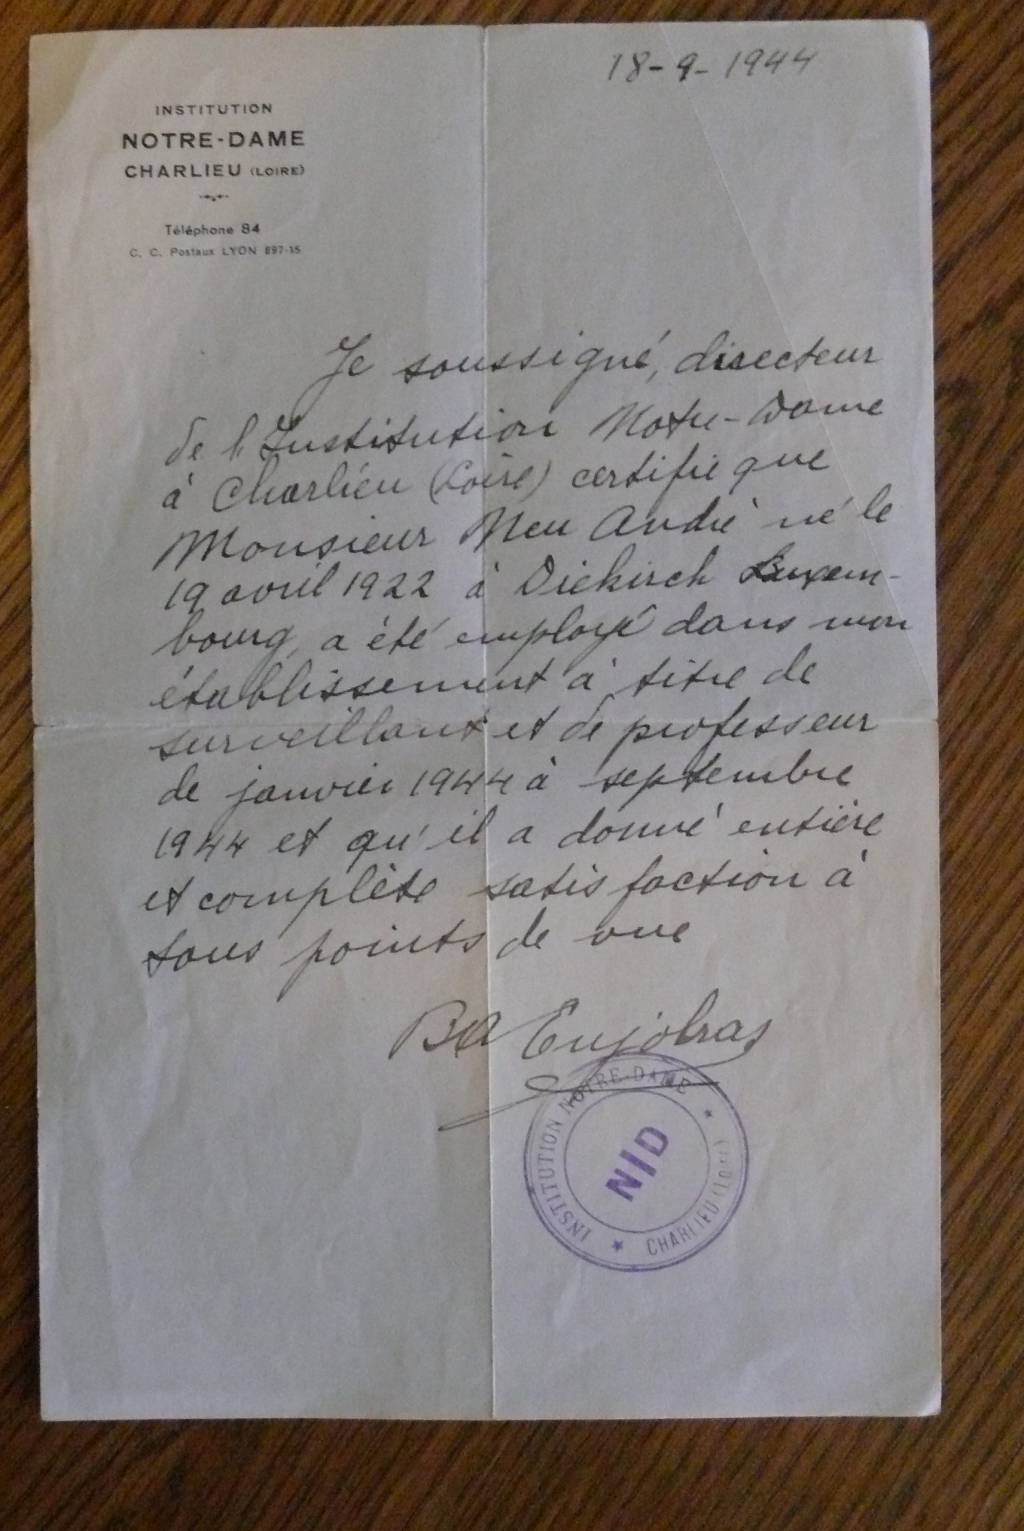 18-9-1944
INSTITUTION
NOTRE-DAME
CHARLIEU (LOIRE)
Téléphone 84
C. C. Postaux LYON 897-15
Je soussigné, directeur
de l'Institution Notre-Dame
à Charlieu (Loire) certifie que
Monsieur Neu André né le
19 avril 1922 à Diekirch Luxem-
bourg, a été employé dans mon
établissement à titre de
surveillant et de professeur
de janvier 1944 à septembre
1944 et qu'il a donné entière
et complète satisfaction à
tous points de vue
Enjolras
INSTITUTION NOTRE-DAME
CHARLIEU (LOIRE)
N/D